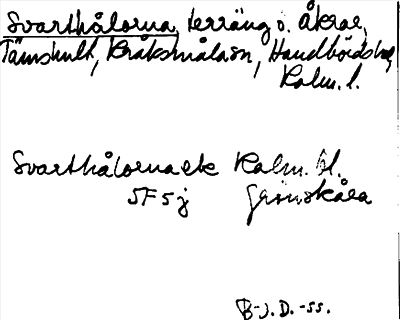 Svarthålorna, terräng o. åkrar,
Tämshult, Bråksmåla sn, Handbörds hd,
Kalm. l.
Svarthålorna ek Kalm. bl.
5F5j Grönskåra
B-J. D. -55.